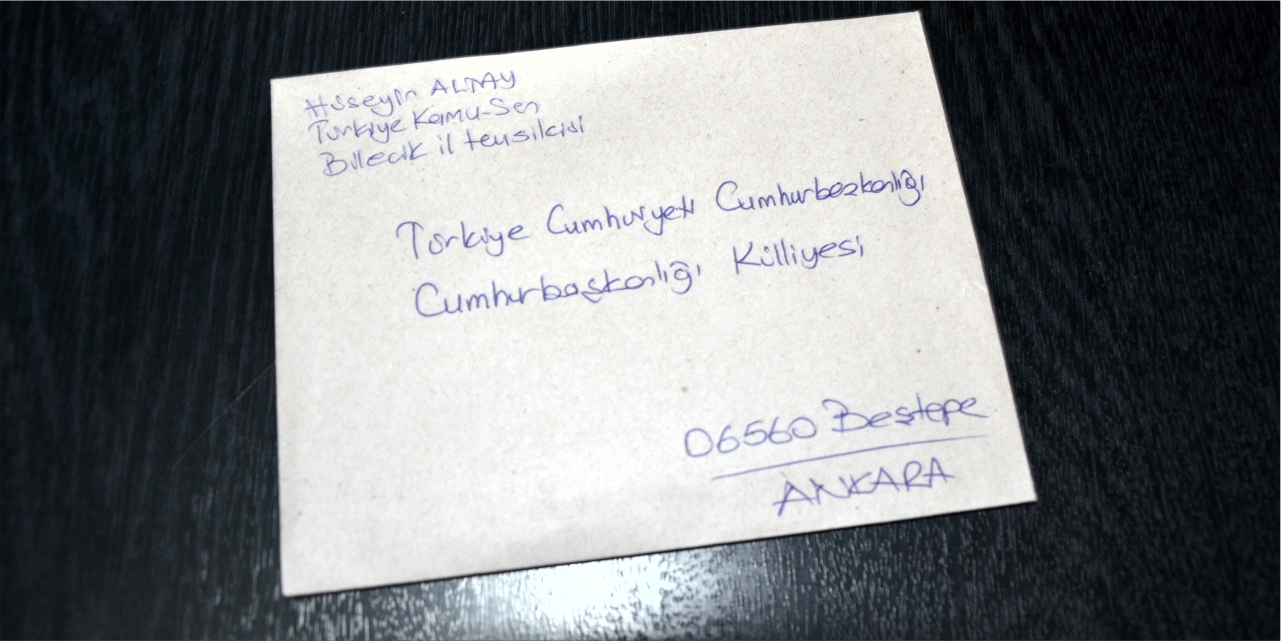 Hüseyin ALTAY
Türkiye Kamu-Sen
Bilecik il temsilcisi
Türkiye Cumhuriyeti Cumhurbaşkanlığı
Cumhurbaşkanlığı Külliyesi
06560 Beştepe
ANKARA